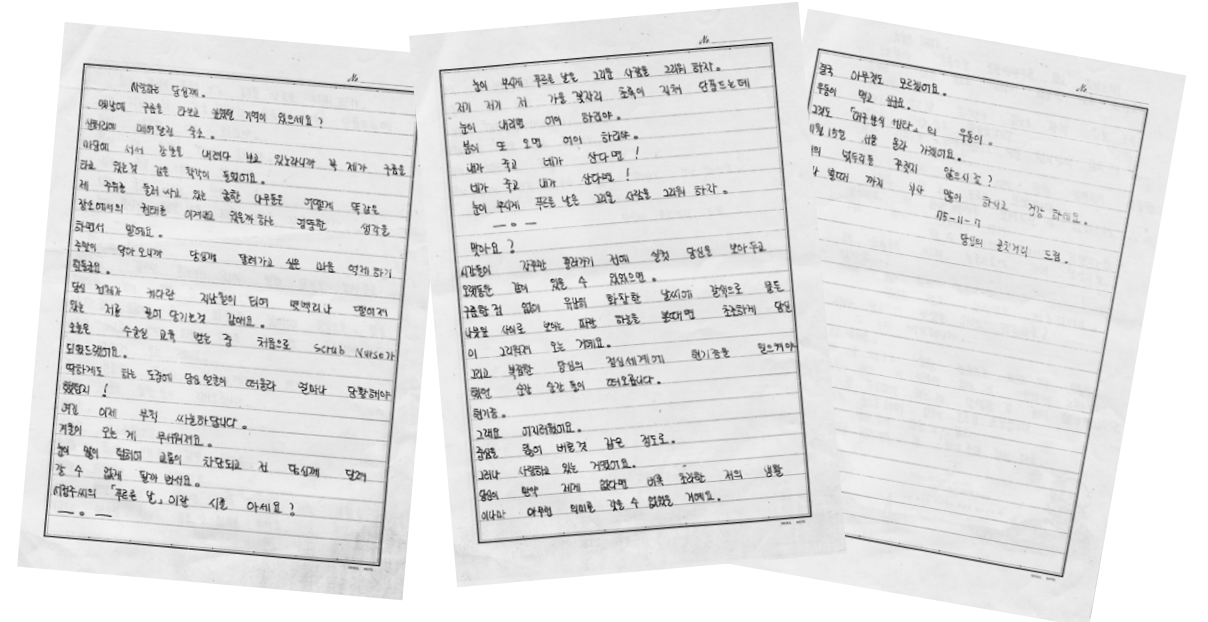 사랑하는 당신께.
옛날에 구름을 타보고 싶었던 기억이 있으세요?
산허리에 매어달린 숙소.
마당에 서서 강물을 내려다 보고 있노라니까 꼭 제가 구름을
타고 있는것 같은 착각이 들었어요.
제 주위를 둘러 싸고 있는 굵은 나무들은 어떻게 똑같은
장소에서의 권태를 이겨내고 있을까 하는 엉뚱한 생각을
하면서 말예요.
주말이 닥아오니까 당신께 달려가고 싶은 마음 억제하기
힘들군요.
당신 전체가 커다란 지남철이 되어 몇백리나 떨어져
있는 저를 끌어 당기는것 같애요.
오늘은 수술실 교육 받는 중 처음으로 Scrub Nurse가
되었드랬어요.
딱하게도 하는 도중에 당신 얼굴이 떠올라 얼마나 당황해야
했었던지!
여긴 이제 무척 싸늘하답니다.
겨울이 오는 게 무서워져요.
눈이 많이 쌓이어 교통이 차단되고 전 당신께 달려
갈 수 없게 될까 봐서요.
서정주씨의 「푸르른 날」이란 시를 아세요?
— 。 —
눈이 부시게 푸르른 날은 그리운 사람을 그리워 하자.
저기 저기 저 가을 꽃자리 초록이 지쳐 단풍드는데
눈이 내리면 어이 하리야.
봄이 또 오면 어이 하리야.
내가 죽고 네가 산다면!
네가 죽고 내가 산다면!
눈이 부시게 푸르른 날은 그리운 사람을 그리워 하자.
— 。 —
맞아요?
시간들이 자꾸만 흘러가기 전에 실컷 당신을 보아두고
오랫동안 같이 있을 수 있었으면.
구름한점 없이 유난히 화창한 날씨에 갈색으로 물든
나뭇잎 사이로 보이는 파란 하늘을 볼때면 초조하게 당신
이 그리워져 오는 거예요.
그리고 복잡한 당신의 정신세계에 현기증을 일으켜야
했던 순간 순간들이 떠오릅니다.
현기증.
그래요 어지러웠어요.
중심을 잃어 버릴것 같은 정도로.
그러나 사랑하고 있는 거였어요.
당신이 만약 제게 없다면 비록 초라한 저의 생활
이나마 아무런 의미를 갖을 수 없었을 거예요.
결국 아무것도 모르겠어요.
우동이 먹고 싶군요.
그것도 의 우동이.
11월 15일 서울 올라 가겠어요.
꾸짖지 않으시죠?
뵐때 까지 식사 많이 하시고 건강 하세요.
75-11-7
당신의 드림.